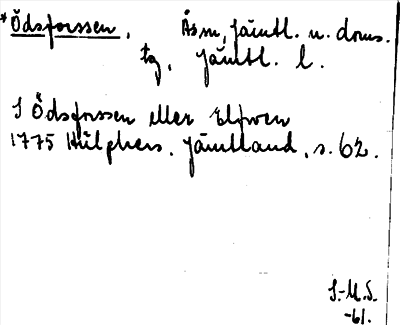 *Ödsforssen. Åsn, Jämtl. n. doms.
tg, Jämtl. l.
I Ödsforssen eller Elfwen
1775 Hülphers. Jämtland, s. 62.
I.-M.S.
-61.